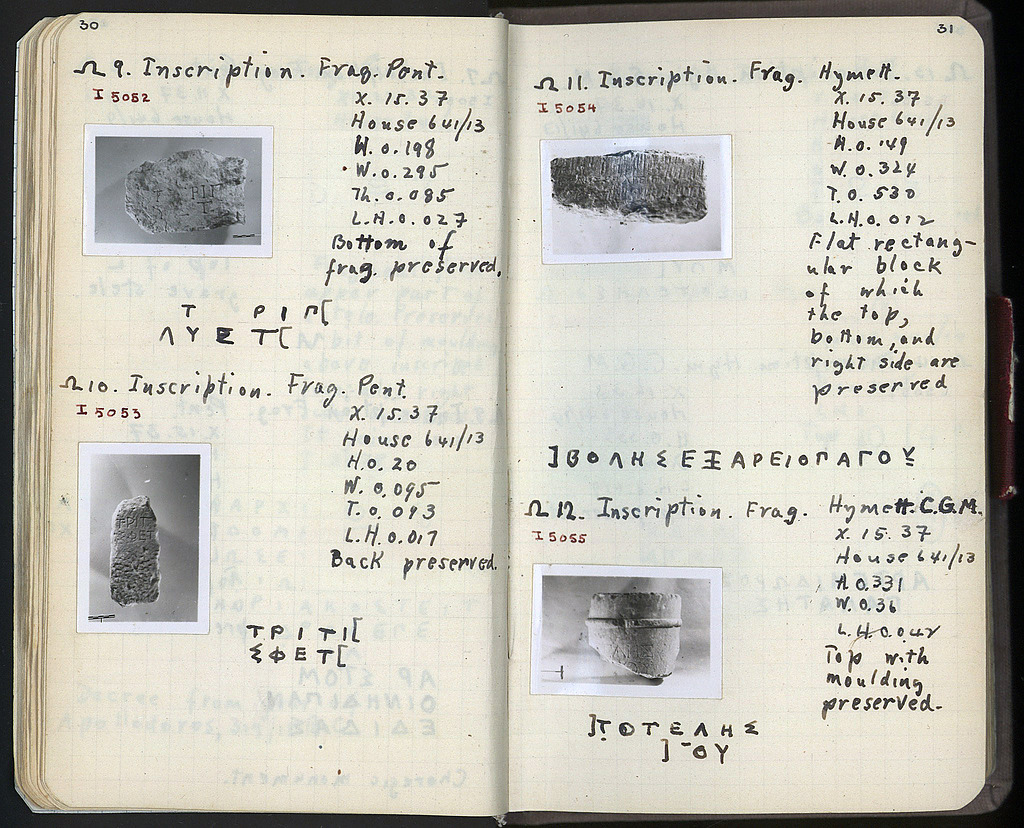 30
Ω 9. Inscription. Frag. Pent.
I 5052
X. 15. 37
House 641/13
H. 0.198
W. 0.295
Th. 0.085
L.H. 0.027
Bottom of
frag. preserved.
Τ ΡΙΠ[
ΛΥΣΤ[
Ω 10. Inscription. Frag. Pent.
I 5053
X. 15. 37
House 641/13
H. 0.20
W. 0.095
T. 0.093
L.H. 0.017
Back preserved.
ΤΡΙΤΙ[
ΣΦΕΤ[
31
Ω 11. Inscription. Frag. Hymett.
I 5054
X. 15. 37
House 641/13
H. 0.149
W. 0.324
T. 0.530
L.H. 0.012
Flat rectang-
ular block
of which
the top,
bottom, and
right side are
preserved
]ΒΟΛΗΣΕΞΑΡΕΙΟΠΑΓΟΥ
Ω 12. Inscription. Frag. Hymett. C.G.M.
I 5055
X. 15. 37
House 641/13
H 0.331
W. 0.36
L.H. 0.042
Top with
moulding
preserved.
]ΤΟΤΕΛΗΣ
]ΟΥ